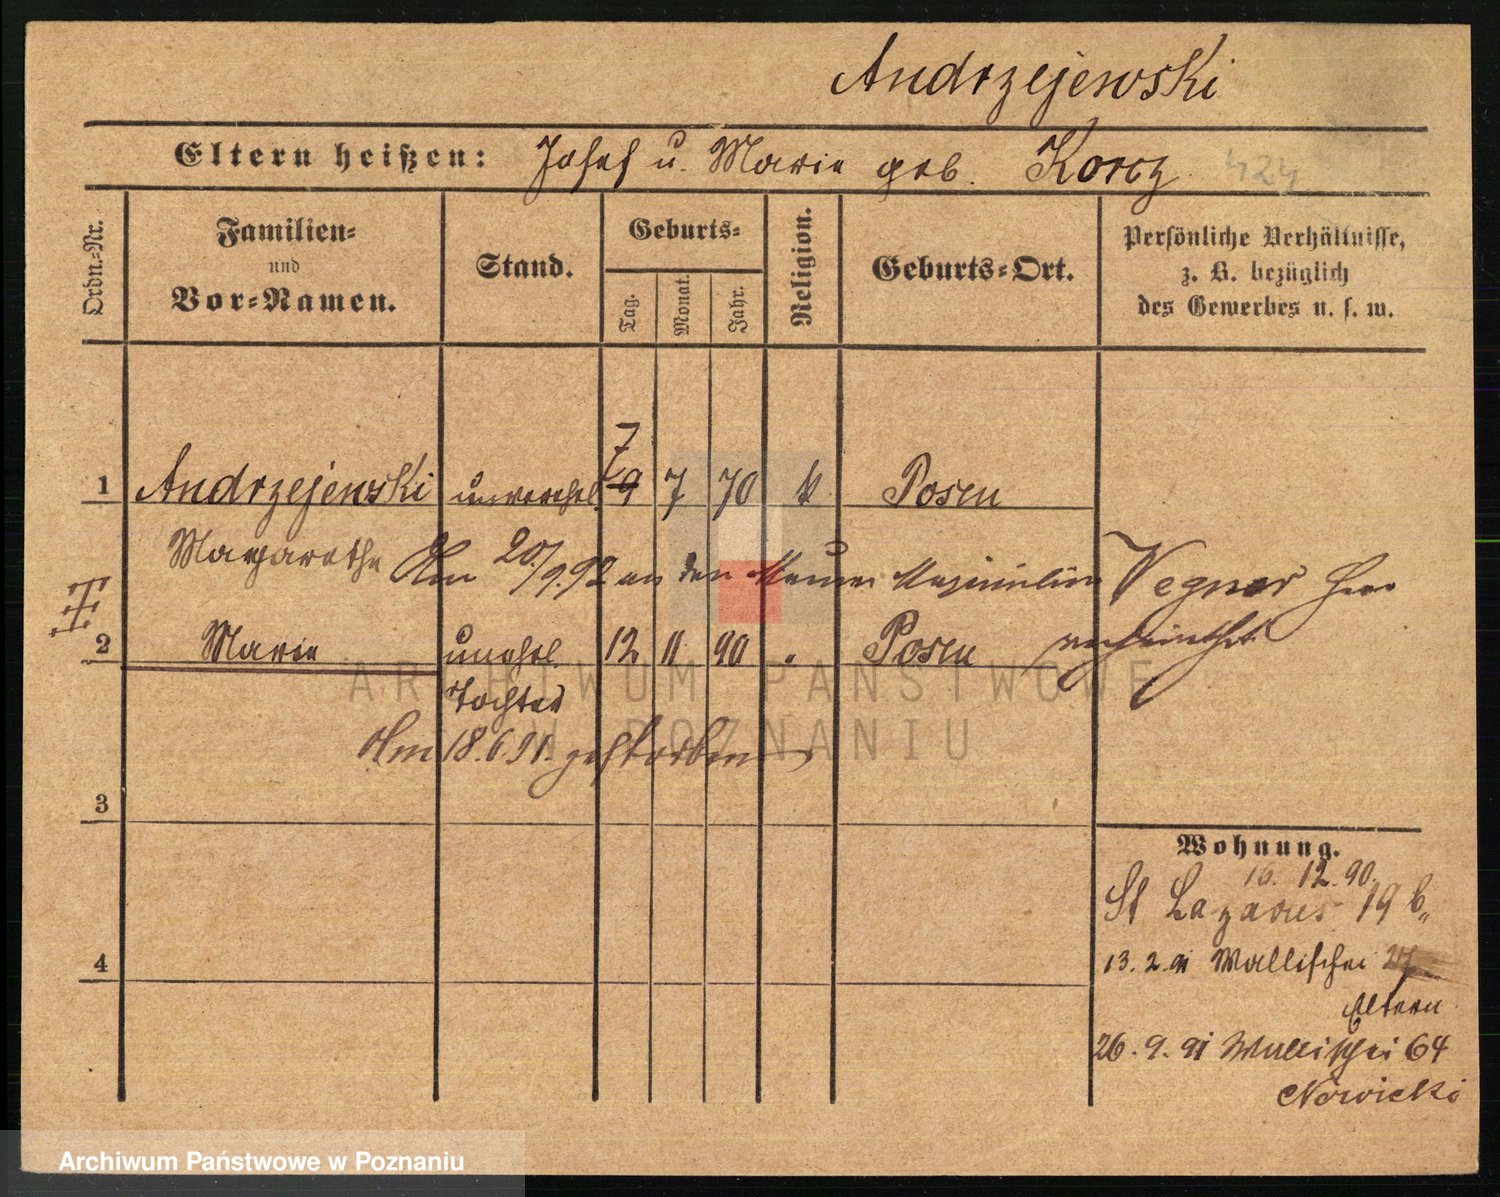 Andrzejewski
Eltern heißen: Josef u. Marie geb. Korcz
424
Ordn.-Nr.
Familien-
und
Vor-Namen.
Stand.
Geburts-
Tag.
Monat.
Jahr.
Religion.
Geburts-Ort.
Persönliche Verhältnisse,
z. B. bezüglich
des Gewerbes u. s. w.
7
1 Andrzejewski unverehel. 9 7 70 k Posen
Margarethe Am 20/9.92 an den Maurer Maximilian Wegner hier
verheirathet
2 Marie unehel. 12 11 90 " Posen
Tochter
Am 18.6.91. gestorben
3
4
Wohnung.
16. 12. 90.
St Lazarus 19 b.
13. 2. 91 Wallischei 27
Eltern
26. 9. 91 Wallischei 64
Nowicki
ARCHIWUM PAŃSTWOWE
W POZNANIU
Archiwum Państwowe w Poznaniu